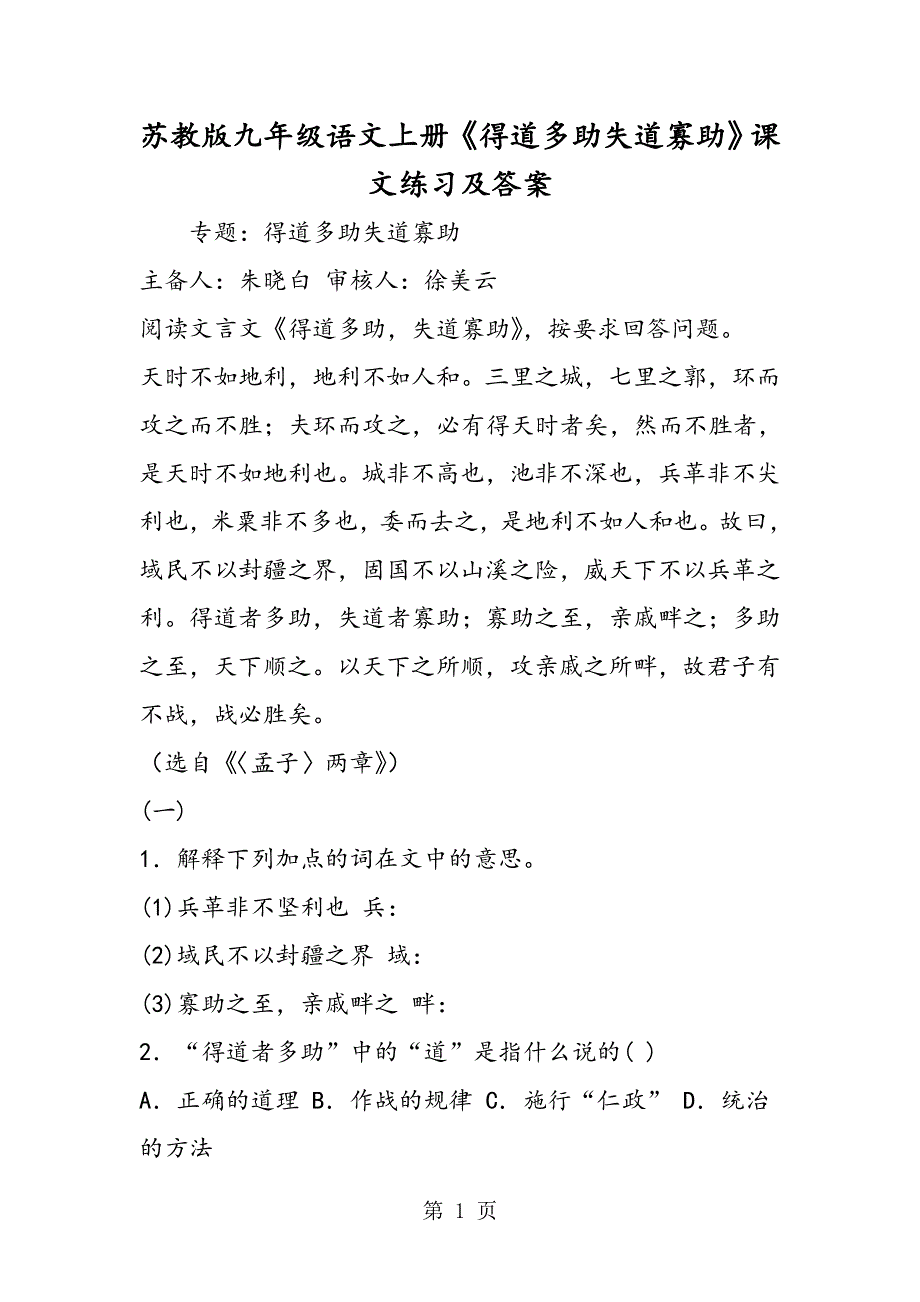 苏教版九年级语文上册《得道多助失道寡助》课
文练习及答案
专题：得道多助失道寡助
主备人：朱晓白 审核人：徐美云
阅读文言文《得道多助，失道寡助》，按要求回答问题。
天时不如地利，地利不如人和。三里之城，七里之郭，环而
攻之而不胜；夫环而攻之，必有得天时者矣，然而不胜者，
是天时不如地利也。城非不高也，池非不深也，兵革非不尖
利也，米粟非不多也，委而去之，是地利不如人和也。故曰，
域民不以封疆之界，固国不以山溪之险，威天下不以兵革之
利。得道者多助，失道者寡助；寡助之至，亲戚畔之；多助
之至，天下顺之。以天下之所顺，攻亲戚之所畔，故君子有
不战，战必胜矣。
（选自《〈孟子〉两章》）
(一)
1．解释下列加点的词在文中的意思。
(1)兵革非不坚利也 兵：
(2)域民不以封疆之界 域：
(3)寡助之至，亲戚畔之 畔：
2．“得道者多助”中的“道”是指什么说的( )
A．正确的道理 B．作战的规律 C．施行“仁政” D．统治
的方法
第 1 页